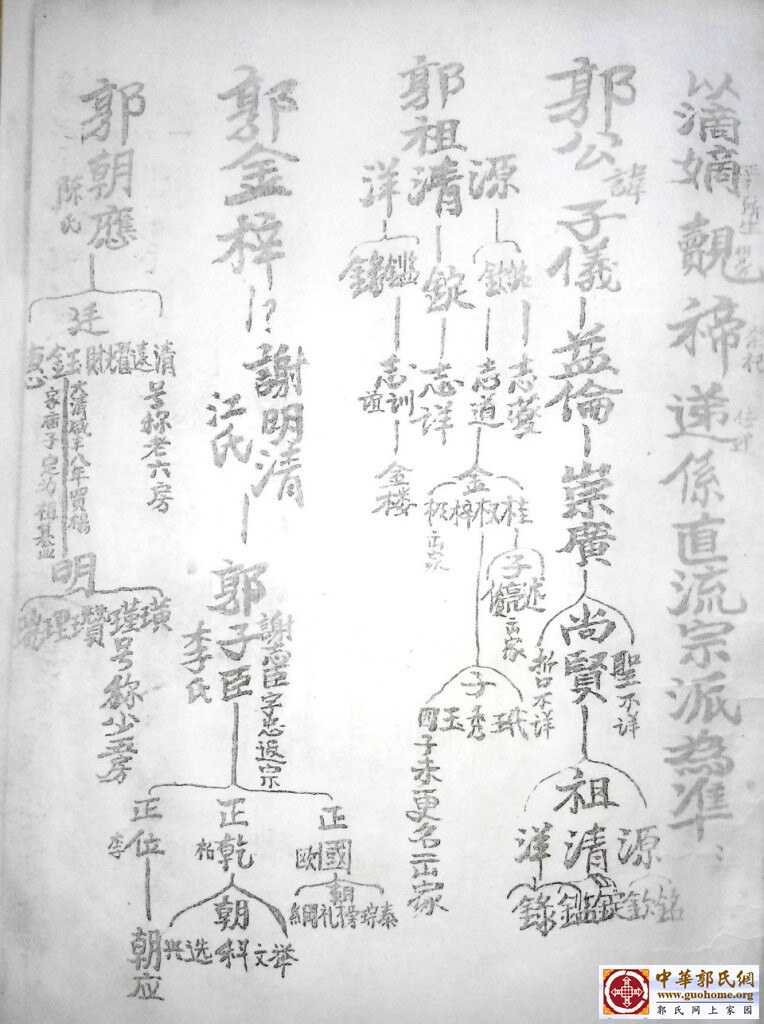 以滴嫡覿禘递係直流宗派為准：
郭公諱子儀
益倫
崇廣
尚賢
聖不详
哲不详
祖
洋清源
錄鑑錠欽銘
郭祖清
洋 源
錠
志訓
誼
志详
志道
金楼
金
梓权桂
出家
子
述
出家
子
玉秀
四子未更名出家
郭金梓
?
謝明清
江氏
郭子臣
李氏
謝志臣字忠返宗
正國
歐
正乾
柏
正位
李
朝
綱礼 琮泰
朝
兴选科文举
朝应
郭朝應
陈氏
廷
貞金玉財耀遠清
号称老六房
大清咸丰八年買楊
明
瑞理瓚瑾璜
号称少五房
中華郭氏網
www.guohome.org
郭氏网上家园